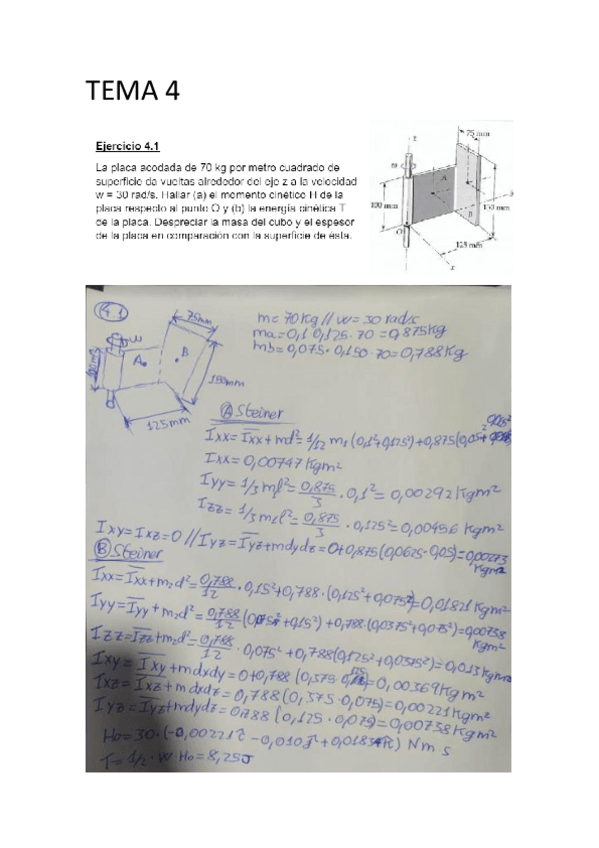 TEMA 4
Ejercicio 4.1
La placa acodada de 70 kg por metro cuadrado de
superficie da vueltas alrededor del eje z a la velocidad
w = 30 rad/s. Hallar (a) el momento cinético H de la
placa respecto al punto O y (b) la energía cinética T
de la placa. Despreciar la masa del cubo y el espesor
de la placa en comparación con la superficie de ésta.
z
75 mm
ω
A
B
100 mm
150 mm
O
125 mm
x
4.1
75mm
w
A
B
150mm
125mm
m= 70Kg // w= 30 rad/s
ma= 0,1·0,125·70 = 0,875kg
mb= 0,075·0,150·70= 0,788Kg
(A) Steiner
Ixx= Ixx+md²= 1/12 m1 (0,1²+0,125²)+0,875(0,05²+
Ixx= 0,00747 Kgm²
Iyy= 1/3 ml²= 0,875/3 · 0,1² = 0,00292 Kgm²
Izz= 1/3 m1l²= 0,875/3 · 0,125² = 0,00456 Kgm²
Ixy=Ixz=0 // Iyz= Iyz+mdydz=0+0,875(0,0625·0,05)=0,00273 Kgm²
(B) Steiner
Ixx= Ixx+m2d²= 0,788/12 · 0,15²+0,788·(0,125²+0,075²)=0,01821 Kgm²
Iyy= Iyy+m2d²= 0,788/12 (0,075²+0,15²)+0,788(0,0375²+0,075²)=0,00738 Kgm²
Izz= Izz+m2d²= 0,788/12 · 0,075²+0,788(0,125²+0,0375²)=0,013 Kgm²
Ixy= Ixy+mdxdy=0+0,788(0,375·0,125)=0,00369Kgm²
Ixz= Ixz+mdxdz=0,788(0,375·0,075)=0,00221Kgm²
Iyz= Iyz+mdydz=0,788(0,125·0,075)=0,00738Kgm²
Ho=30·(-0,00221i -0,010j + k) Nm·s
T= 1/2 · w·Ho = 8,25J